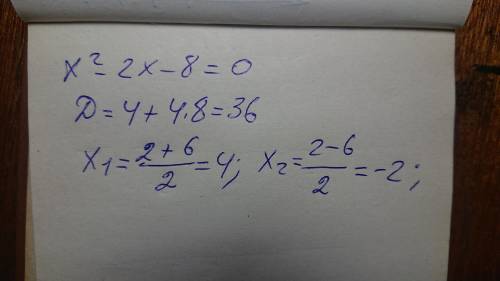 x² - 2x - 8 = 0
D = 4 + 4·8 = 36
x₁ = (2 + 6)/2 = 4; x₂ = (2 - 6)/2 = -2;